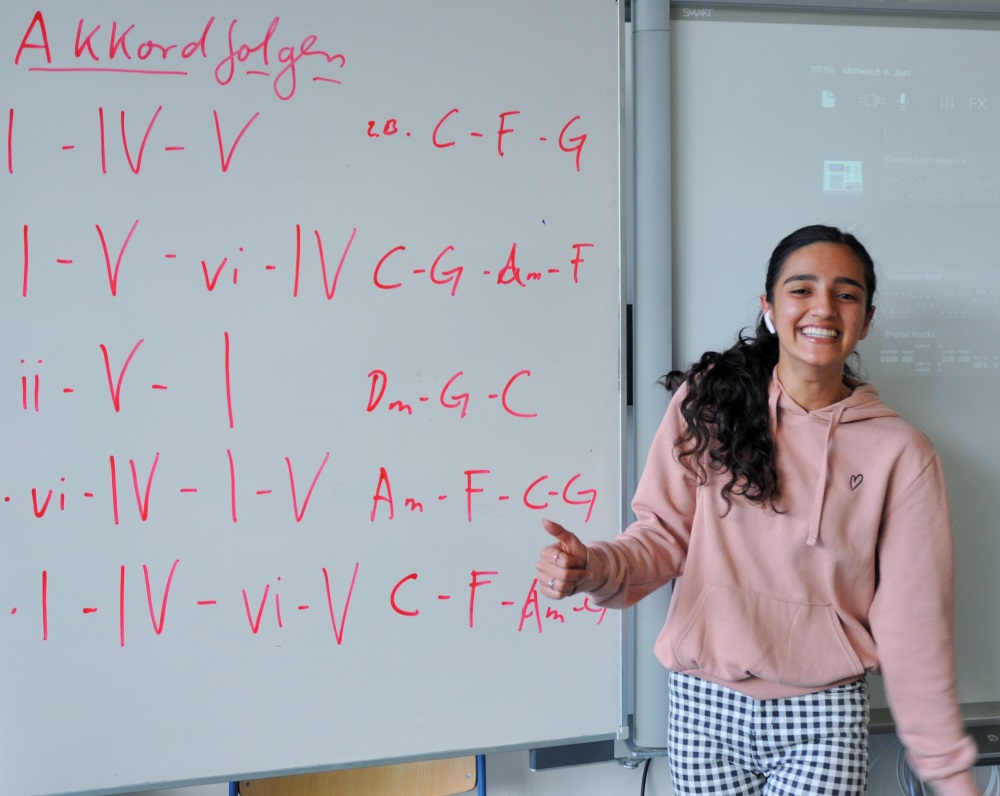 Akkordfolgen
I - IV - V z.B. C - F - G
I - V - vi - IV C - G - Am - F
ii - V - I Dm - G - C
· vi - IV - I - V Am - F - C - G
· I - IV - vi - V C - F - Am - G
SMART
07:50 Mittwoch 8. Juni
FX
Classic Drum Machine
Sequence Bass
Digital Plucks